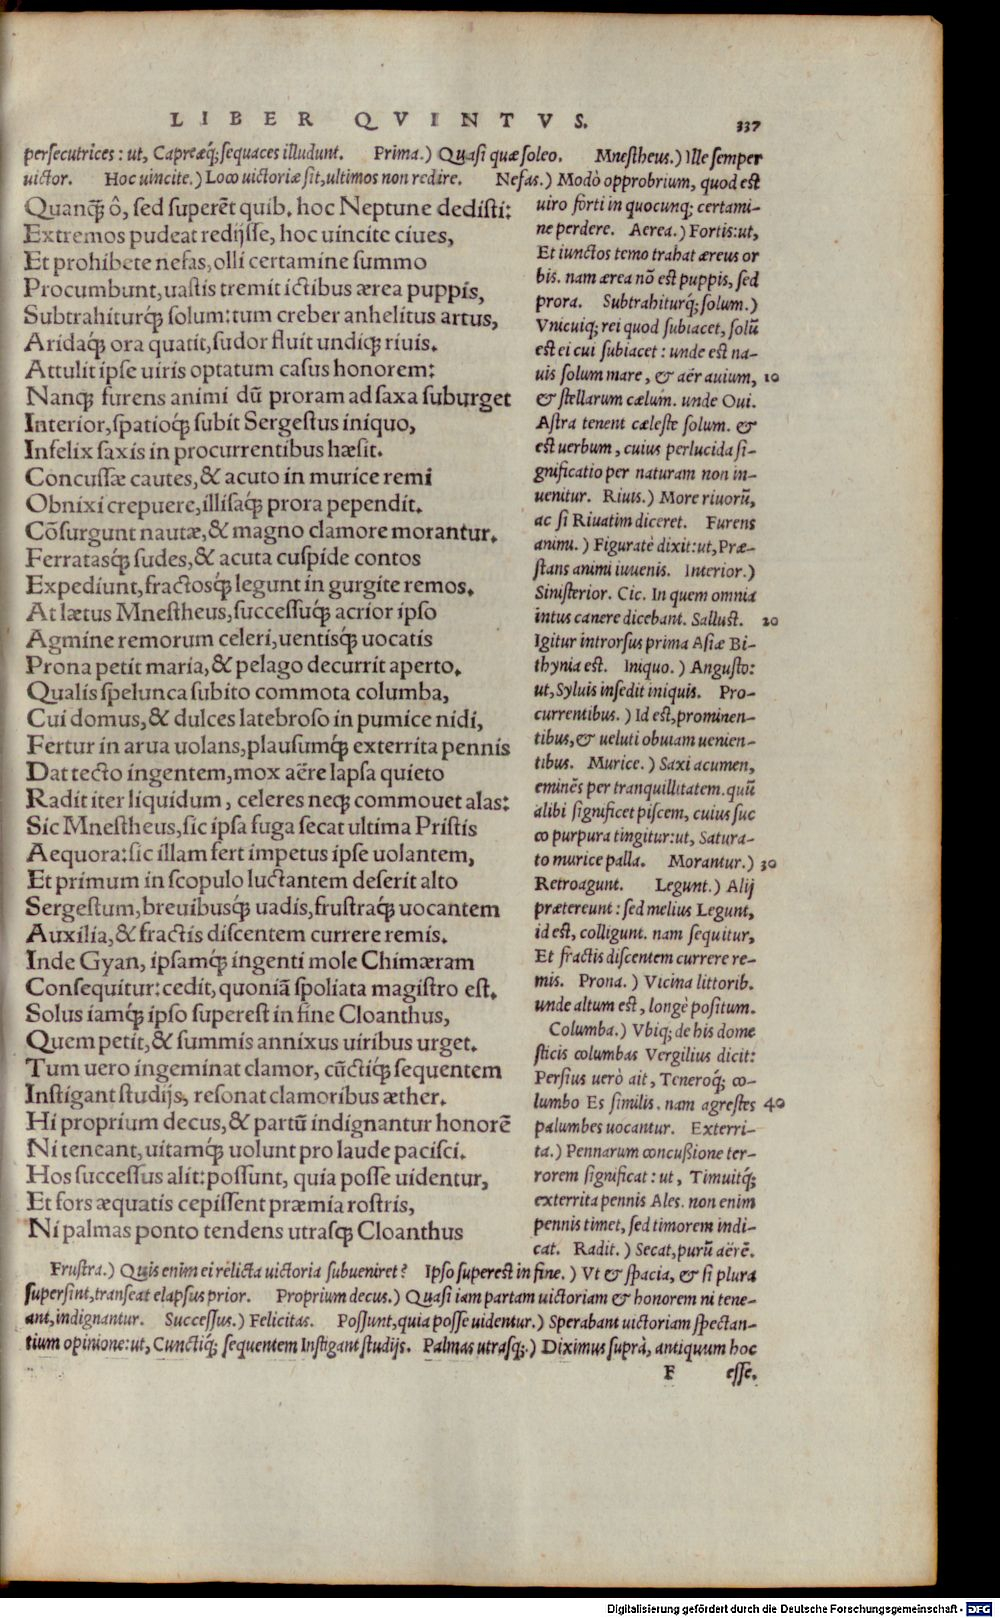 LIBER QVINTVS. 337
persecutrices: ut, Capreæq́; sequaces illudunt. Prima.) Quasi quæ soleo. Mnestheus.) Ille semper
uictor. Hoc uincite.) Loco uictoriæ sit, ultimos non redire. Nefas.) Modò opprobrium, quod est
Quanq̃ ô, sed superēt quib. hoc Neptune dedisti:
Extremos pudeat redijsse, hoc uincite ciues,
Et prohibete nefas, olli certamine summo
Procumbunt, uastis tremit ictibus ærea puppis,
Subtrahiturq́; solum: tum creber anhelitus artus,
Aridaq́; ora quatit, sudor fluit undiq; riuis.
Attulit ipse uiris optatum casus honorem:
Nanq; furens animi dū proram ad saxa suburget
Interior, spatioq́; subit Sergestus iniquo,
Infelix saxis in procurrentibus hæsit.
Concussæ cautes, & acuto in murice remi
Obnixi crepuere, illisaq́; prora pependit.
Cōsurgunt nautæ, & magno clamore morantur.
Ferratasq́; sudes, & acuta cuspide contos
Expediunt, fractosq́; legunt in gurgite remos.
At lætus Mnestheus, successuq́; acrior ipso
Agmine remorum celeri, uentisq́; uocatis
Prona petit maria, & pelago decurrit aperto.
Qualis spelunca subito commota columba,
Cui domus, & dulces latebroso in pumice nidi,
Fertur in arua uolans, plausumq́; exterrita pennis
Dat tecto ingentem, mox aëre lapsa quieto
Radit iter liquidum, celeres neq; commouet alas:
Sic Mnestheus, sic ipsa fuga secat ultima Pristis
Aequora: sic illam fert impetus ipse uolantem,
Et primum in scopulo luctantem deserit alto
Sergestum, breuibusq́; uadis, frustraq́; uocantem
Auxilia, & fractis discentem currere remis.
Inde Gyan, ipsamq́; ingenti mole Chimæram
Consequitur: cedit, quoniā spoliata magistro est.
Solus iamq́; ipso superest in fine Cloanthus,
Quem petit, & summis annixus uiribus urget.
Tum uero ingeminat clamor, cūctiq́; sequentem
Instigant studijs, resonat clamoribus æther.
Hi proprium decus, & partū indignantur honorē
Ni teneant, uitamq́; uolunt pro laude pacisci.
Hos successus alit: possunt, quia posse uidentur,
Et fors æquatis cepissent præmia rostris,
Ni palmas ponto tendens utrasq; Cloanthus
uiro forti in quocunq; certami-
ne perdere. Aerea.) Fortis: ut,
Et iunctos temo trahat æreus or
bis. nam ærea nō est puppis, sed
prora. Subtrahiturq́; solum.)
Vnicuiq; rei quod subiacet, solū
est ei cui subiacet: unde est na-
uis solum mare, & aër auium, 10
& stellarum cælum. unde Oui.
Astra tenent cæleste solum. &
est uerbum, cuius perlucida si-
gnificatio per naturam non in-
uenitur. Riuis.) More riuorū,
ac si Riuatim diceret. Furens
animi.) Figuratè dixit: ut, Præ-
stans animi iuuenis. Interior.)
Sinisterior. Cic. In quem omnia
intus canere dicebant. Sallust. 20
Igitur introrsus prima Asiæ Bi-
thynia est. Iniquo.) Angusto:
ut, Syluis insedit iniquis. Pro-
currentibus.) Id est, prominen-
tibus, & ueluti obuiam uenien-
tibus. Murice.) Saxi acumen,
eminēs per tranquillitatem. quū
alibi significet piscem, cuius suc
co purpura tingitur: ut, Satura-
to murice palla. Morantur.) 30
Retroagunt. Legunt.) Alij
prætereunt: sed melius Legunt,
id est, colligunt. nam sequitur,
Et fractis discentem currere re-
mis. Prona.) Vicina littorib.
unde altum est, longè positum.
Columba.) Vbiq; de his dome
sticis columbas Vergilius dicit:
Persius uerò ait, Teneroq́; co-
lumbo Es similis. nam agrestes 40
palumbes uocantur. Exterri-
ta.) Pennarum concußione ter-
rorem significat: ut, Timuitq́;
exterrita pennis Ales. non enim
pennis timet, sed timorem indi-
cat. Radit.) Secat, purū aërē.
Frustra.) Quis enim ei relicta uictoria subueniret? Ipso superest in fine.) Vt & spacia, & si plura
supersint, transeat elapsus prior. Proprium decus.) Quasi iam partam uictoriam & honorem ni tene-
ant, indignantur. Successus.) Felicitas. Possunt, quia posse uidentur.) Sperabant uictoriam spectan-
tium opinione: ut, Cunctiq́; sequentem Instigant studijs. Palmas utrasq;.) Diximus suprà, antiquum hoc
F esse.
Digitalisierung gefördert durch die Deutsche Forschungsgemeinschaft - DFG